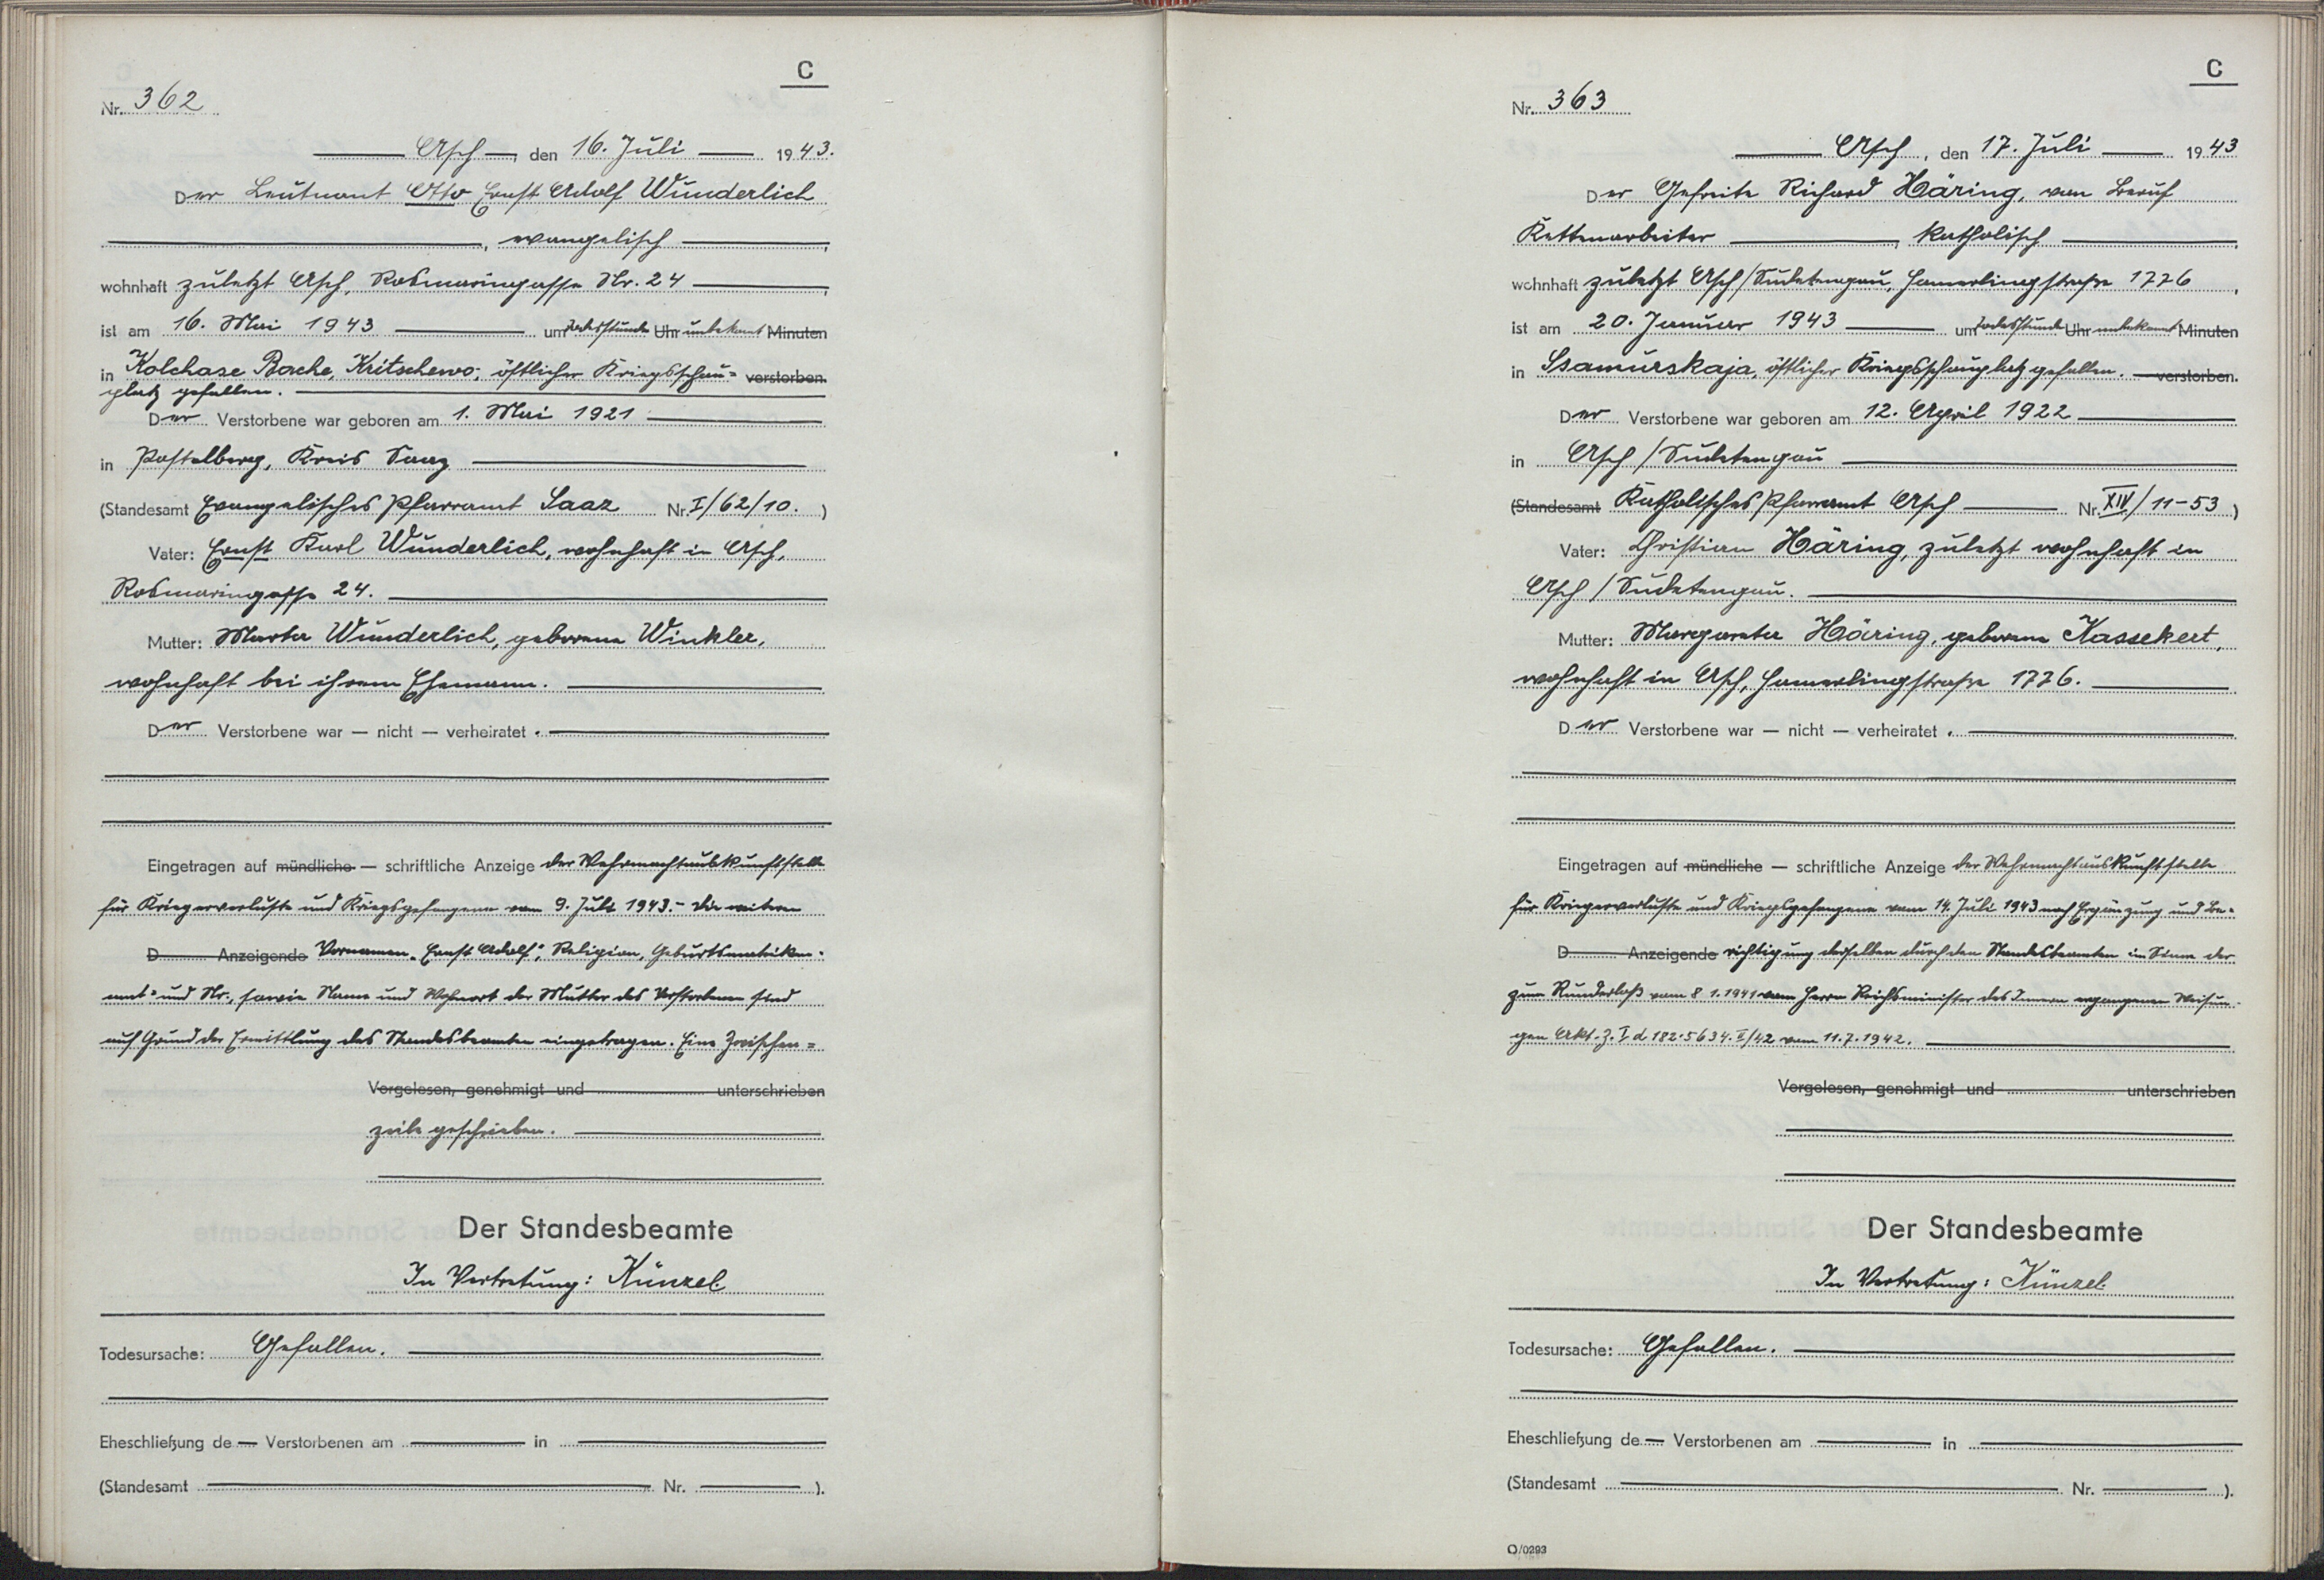 C
Nr. 362
Asch, den 16. Juli 1943.
Der Leutnant Otto Ernst Adolf Wunderlich
, evangelisch,
wohnhaft zuletzt Asch, Rosmaringasse Nr. 24,
ist am 16. Mai 1943 um Todesstunde Uhr unbekannt Minuten
in Kolchase Bache, Kritschewo, östlicher Kriegsschau= verstorben.
platz gefallen.
Der Verstorbene war geboren am 1. Mai 1921
in Postelberg, Kreis Saaz
(Standesamt Evangelisches Pfarramt Saaz Nr. I/62/10.)
Vater: Ernst Karl Wunderlich, wohnhaft in Asch,
Rosmaringasse 24.
Mutter: Marta Wunderlich, geborene Winkler,
wohnhaft bei ihrem Ehemann.
Der Verstorbene war — nicht — verheiratet.
Eingetragen auf mündliche — schriftliche Anzeige der Wehrmachtauskunftstelle
für Kriegerverluste und Kriegsgefangene vom 9. Juli 1943.- Die weiteren
D Anzeigende Vornamen „Ernst Adolf“, Religion, Geburtsmatriken-
amt= und Nr., sowie Name und Wohnort der Mutter des Verstorbenen sind
auf Grund der Ermittlung des Standesbeamten eingetragen. Eine Zwischen=
Vorgelesen, genehmigt und unterschrieben
zeile geschrieben.
Der Standesbeamte
In Vertretung: Künzel.
Todesursache: Gefallen.
Eheschließung de Verstorbenen am in
(Standesamt Nr. ).
C
Nr. 363
Asch, den 17. Juli 1943
Der Gefreite Richard Häring, von Beruf
Kettenarbeiter, katholisch,
wohnhaft zuletzt Asch/Sudetengau, Hamerlingstraße 1776,
ist am 20. Januar 1943 um Todesstunde Uhr unbekannt Minuten
in Ssamurskaja, östlicher Kriegsschauplatz gefallen. verstorben.
Der Verstorbene war geboren am 12. April 1922
in Asch/Sudetengau
(Standesamt Katholisches Pfarramt Asch Nr. XIV/11-53)
Vater: Christian Häring, zuletzt wohnhaft in
Asch/Sudetengau.
Mutter: Margareta Häring, geborene Kassekert,
wohnhaft in Asch, Hamerlingstraße 1776.
Der Verstorbene war — nicht — verheiratet.
Eingetragen auf mündliche — schriftliche Anzeige der Wehrmachtauskunftstelle
für Kriegerverluste und Kriegsgefangene vom 14. Juli 1943 nach Ergänzung und Be-
D Anzeigende richtigung derselben durch den Standesbeamten im Sinne der
zum Runderlaß vom 8.1.1941 vom Herrn Reichsminister des Innern ergangenen Weisun-
gen Akt. Z. I d 182.5634.II/42 vom 11.7.1942.
Vorgelesen, genehmigt und unterschrieben
Der Standesbeamte
In Vertretung: Künzel.
Todesursache: Gefallen.
Eheschließung de Verstorbenen am in
(Standesamt Nr. ).
O/0293